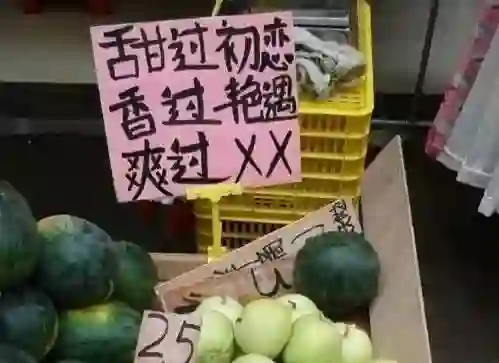 甜过初恋
香过艳遇
爽过XX
25